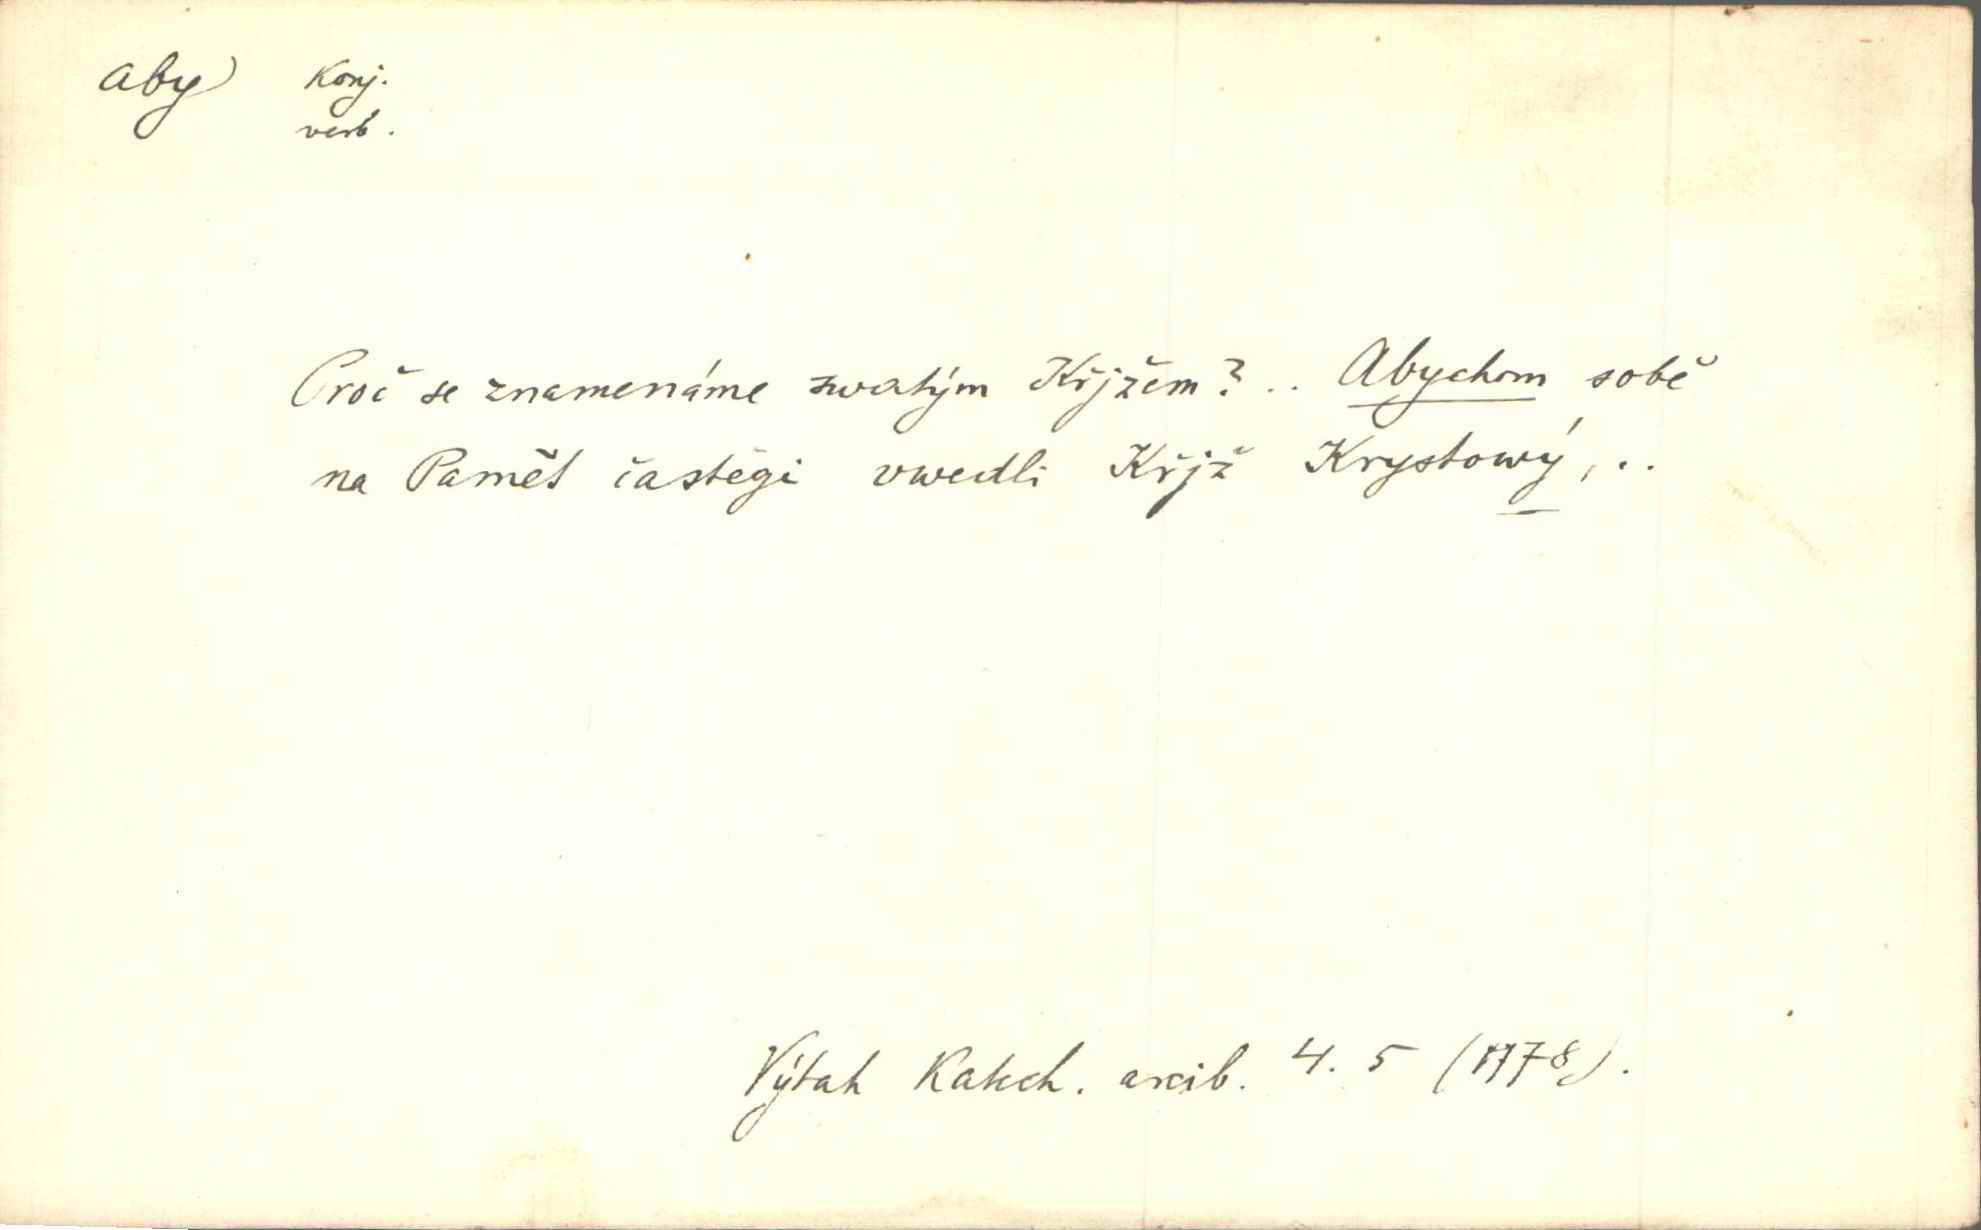 aby Konj.
verb.
Proč se znamenáme swatým Křjžem? .. Abychom sobě
na Pamět častěgi vwedli Křjž Krystowý, ..
Výtah Katech. arcib. 4. 5 (1778).